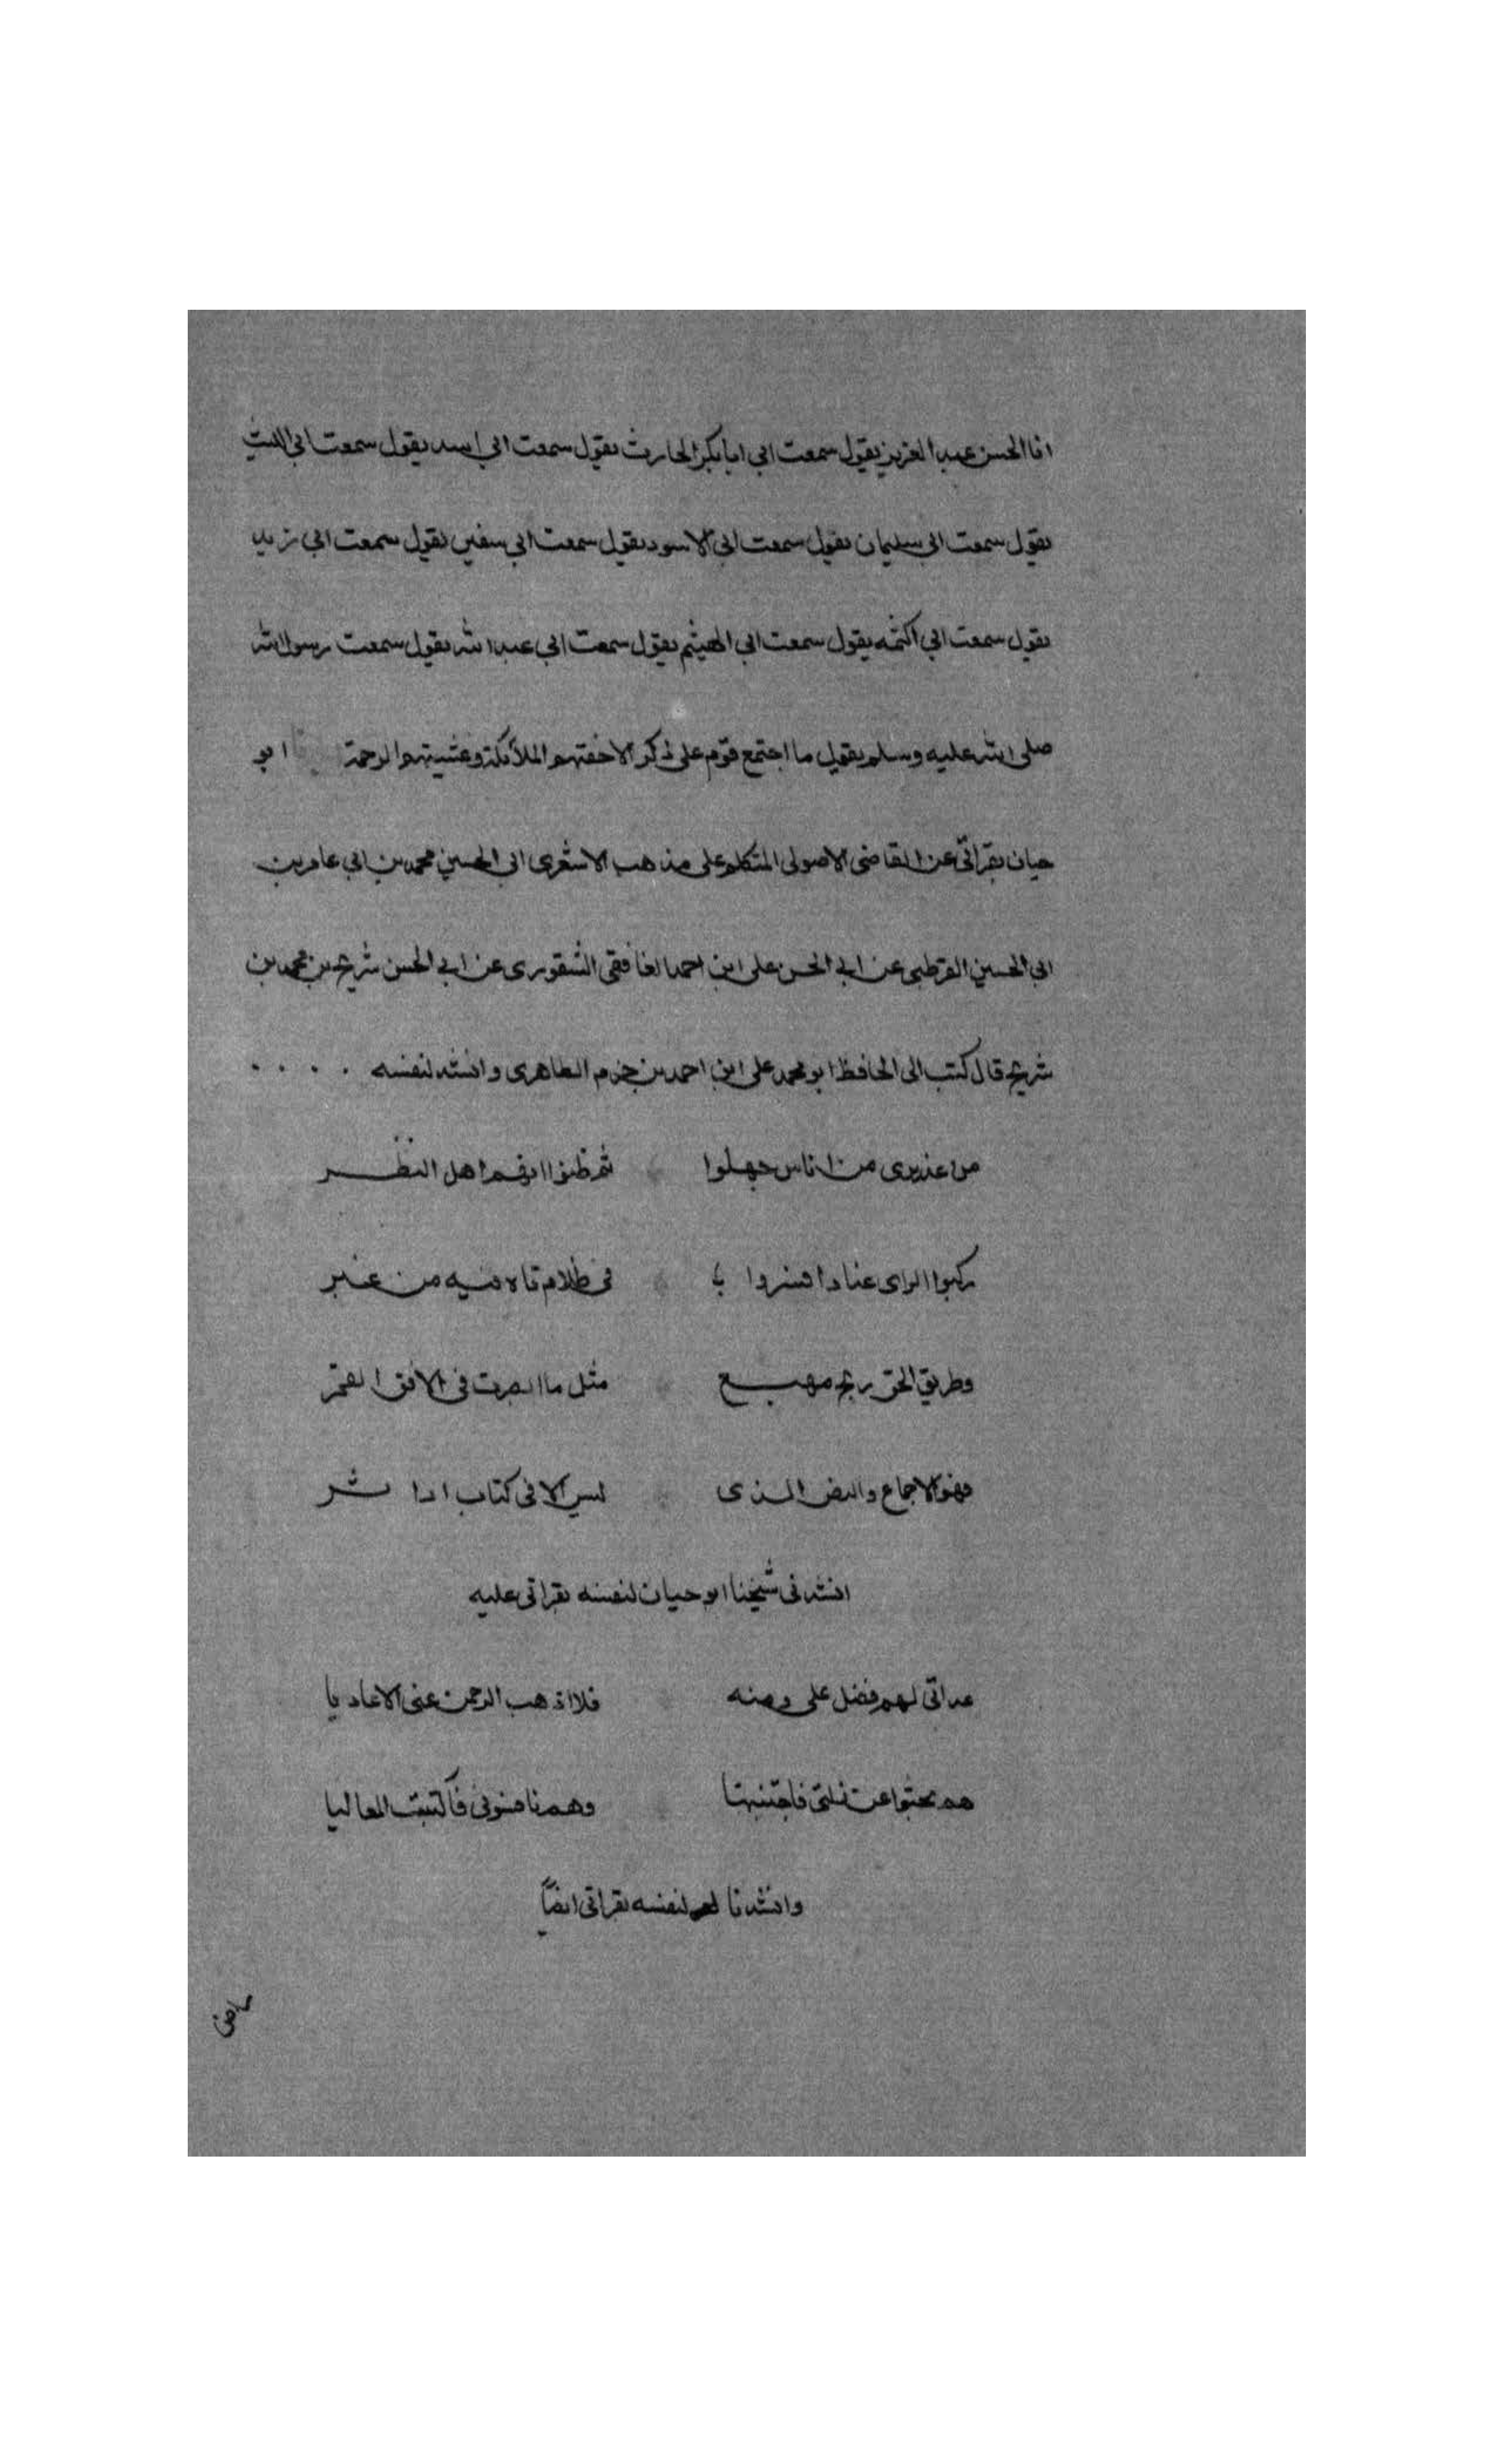 انا الحسن عبد العزيز يقول سمعت ابي ابا بكر الحارث يقول سمعت ابي اسد يقول سمعت ابي الليث
يقول سمعت ابي سليمان يقول سمعت ابي الاسود يقول سمعت ابي سفين يقول سمعت ابي زيد
يقول سمعت ابي اكنمه يقول سمعت ابي الهيثم يقول سمعت ابي عبد الله يقول سمعت رسول الله
صلى الله عليه وسلم يقول ما اجتمع قوم على ذكر الا حفتهم الملائكة وغشيتهم الرحمة ابو
حيان بقراتي عن القاضي الاصولي المتكلم على مذهب الاشعري ابي الحسين محمد بن ابي عامر بن
ابي الحسين القرطبي عن ابي الحسن على ابن احمد الغافقي الشقوري عن ابي الحسن شريح بن محمد بن
شريح قال كتب الى الحافظ ابو محمد على ابن احمد بن حزم الظاهرى وانشد لنفسه . . . .
من عذيرى من اناس جهلوا ثم ظنوا انهم اهل النظر
ركبوا الراى عنادا فسروا في ظلام تاه فيه من غبر
وطريق الحق نهج مهيع مثل ما ابصرت في الافق القمر
فهو الاجماع والنص الذى ليس الا في كتاب او اثر
انشدني شيخنا ابو حيان لنفسه بقراتي عليه
عداتي لهم فضل على ومنه فلا اذهب الرحمن عني الاعاديا
هم بحثوا عن زلتي فاجتنبتها وهم نافسوني فاكتسبت المعاليا
وانشدنا لنفسه بقراتي ايضاً